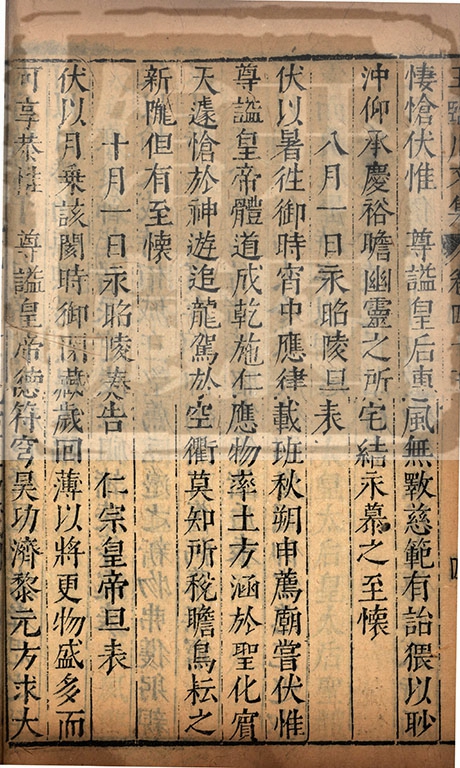 悽愴伏惟　尊謚皇后惠風無斁慈範有詒猥以眇
沖仰承慶裕瞻幽靈之所宅結永慕之至懷
八月一日永昭陵旦表
伏以暑徃御時宵中應律載班秋朔申薦廟嘗伏惟
尊謚皇帝體道成乾施仁應物率土方涵於聖化賔
天遽愴於神遊追龍駕於空衢莫知所稅瞻鳥耘之
新隴但有至懷
十月一日永昭陵奏告　仁宗皇帝旦表
伏以月乗該閡時御閉藏歲回薄以將更物盛多而
可享恭惟　尊謚皇帝德符穹昊功濟黎元方求大